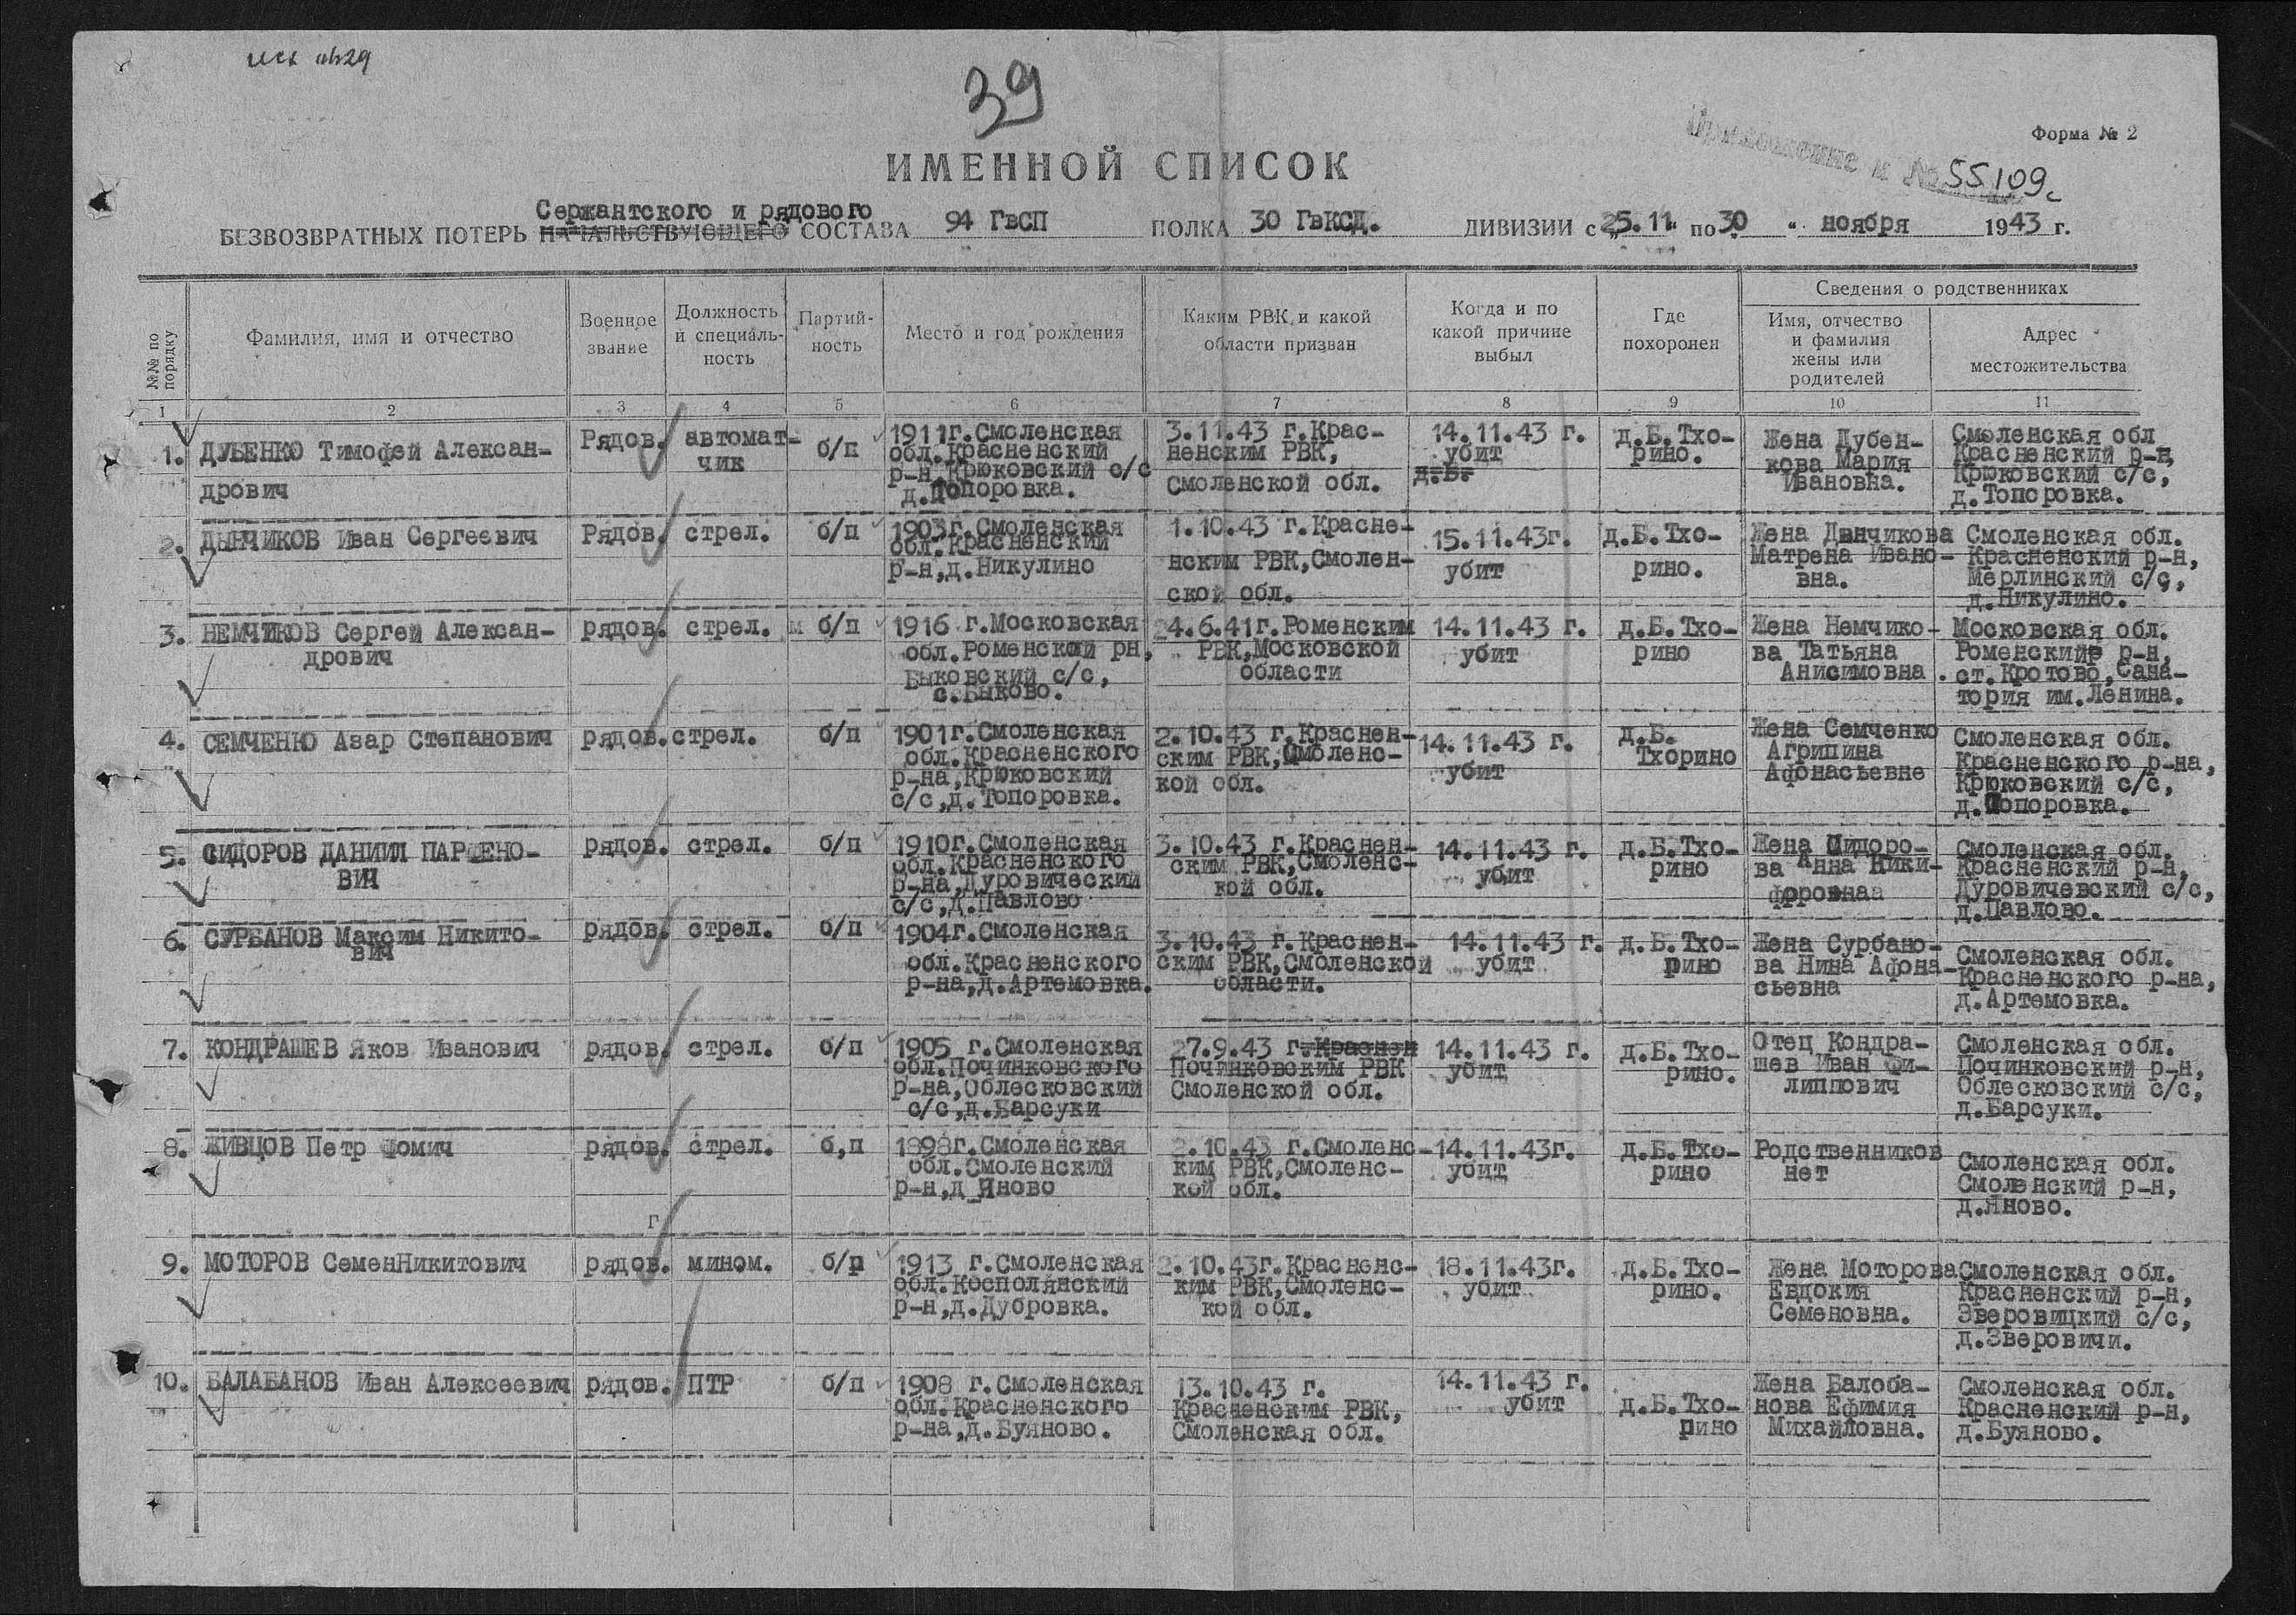 39
Форма № 2
Приложение к № 55109с
ИМЕННОЙ СПИСОК
Сержантского и рядового
БЕЗВОЗВРАТНЫХ ПОТЕРЬ НАЧАЛЬСТВУЮЩЕГО СОСТАВА 94 ГвСП ПОЛКА 30 ГвКСД. ДИВИЗИИ с 25.11 " по 30 " ноября 1943 г.
№№ по порядку
Фамилия, имя и отчество
Военное
звание
Должность
и специаль-
ность
Партий-
ность
Место и год рождения
Каким РВК и какой
области призван
Когда и по
какой причине
выбыл
Где
похоронен
Сведения о родственниках
Имя, отчество
и фамилия
жены или
родителей
Адрес
местожительства
1 2 3 4 5 6 7 8 9 10 11
1. ДУБЕНКО Тимофей Алексан-
дрович
Рядов.
автомат-
чик
б/п
1911г.Смоленская
обл.Красненский
р-н,Крюковский с/с
д.Топоровка.
3.11.43 г.Крас-
ненским РВК,
Смоленской обл.
14.11.43 г.
убит
д.Б.
д.Б.Тхо-
рино.
Жена Дубен-
кова Мария
Ивановна.
Смоленская обл
Красненский р-н,
Крюковский с/с,
д.Топоровка.
2. ДЫНЧИКОВ Иван Сергеевич
Рядов.
стрел.
б/п
1903г.Смоленская
обл.Красненский
р-н,д.Никулино
1.10.43 г.Красне-
нским РВК,Смолен-
ской обл.
15.11.43г.
убит
д.Б.Тхо-
рино.
Жена Дынчикова
Матрена Ивано-
вна.
Смоленская обл.
Красненский р-н,
Мерлинский с/с,
д.Никулино.
3. НЕМЧИКОВ Сергей Алексан-
дрович
рядов.
стрел.
б/п
1916 г.Московская
обл.Роменский рн,
Быковский с/с,
с.Быково.
24.6.41г.Роменским
РВК,Московской
области
14.11.43 г.
убит
д.Б.Тхо-
рино
Жена Немчико-
ва Татьяна
Анисимовна.
Московская обл.
Роменский р-н,
ст.Кротово,Сана-
тория им.Ленина.
4. СЕМЧЕНКО Азар Степанович
рядов.
стрел.
б/п
1901г.Смоленская
обл.Красненского
р-на,Крюковский
с/с,д.Топоровка.
2.10.43 г.Краснен-
ским РВК,Смоленс-
кой обл.
14.11.43 г.
убит
д.Б.
Тхорино
Жена Семченко
Агрипина
Афонасьевне
Смоленская обл.
Красненского р-на,
Крюковский с/с,
д.Топоровка.
5. СИДОРОВ ДАНИИЛ ПАРФЕНО-
ВИЧ
рядов.
стрел.
б/п
1910г.Смоленская
обл.Красненского
р-на,Дуровический
с/с,д.Павлово
3.10.43 г.Краснен-
ским РВК,Смоленс-
кой обл.
14.11.43 г.
убит
д.Б.Тхо-
рино
Жена Сидоро-
ва Анна Ники-
форовна
Смоленская обл.
Красненский р-н,
Дуровичевский с/с,
д.Павлово.
6. СУРБАНОВ Максим Никито-
вич
рядов.
стрел.
б/п
1904г.Смоленская
обл.Красненского
р-на,д.Артемовка.
3.10.43 г.Краснен-
ским РВК,Смоленской
области.
14.11.43 г.
убит
д.Б.Тхо-
рино
Жена Сурбано-
ва Нина Афона-
сьевна
Смоленская обл.
Красненского р-на,
д.Артемовка.
7. КОНДРАШЕВ Яков Иванович
рядов.
стрел.
б/п
1905 г.Смоленская
обл.Починковского
р-на,Облесковский
с/с,д.Барсуки
27.9.43 г.Краснен
Починковским РВК
Смоленской обл.
14.11.43 г.
убит
д.Б.Тхо-
рино.
Отец Кондра-
шев Иван Фи-
липпович
Смоленская обл.
Починковский р-н,
Облесковский с/с,
д.Барсуки.
8. ЖИВЦОВ Петр Фомич
рядов.
стрел.
б,п
1898г.Смоленская
обл.Смоленский
р-н,д Яново
2.10.43 г.Смоленс-
ким РВК,Смоленс-
кой обл.
14.11.43г.
убит
д.Б.Тхо-
рино
Родственников
нет
Смоленская обл.
Смоленский р-н,
д.Яново.
г
9. МОТОРОВ СеменНикитович
рядов.
мином.
б/р
1913 г.Смоленская
обл.Косполянский
р-н,д.Дубровка.
2.10.43г.Красненс-
ким РВК,Смоленс-
кой обл.
18.11.43г.
убит
д.Б.Тхо-
рино.
Жена Моторова
Евдокия
Семеновна.
Смоленская обл.
Красненский р-н,
Зверовицкий с/с,
д.Зверовичи.
10. БАЛАБАНОВ Иван Алексеевич
рядов.
ПТР
б/п
1908 г.Смоленская
обл.Красненского
р-на,д.Буяново.
13.10.43 г.
Красненским РВК,
Смоленская обл.
14.11.43 г.
убит
д.Б.Тхо-
рино
Жена Балоба-
нова Ефимия
Михайловна.
Смоленская обл.
Красненский р-н,
д.Буяново.